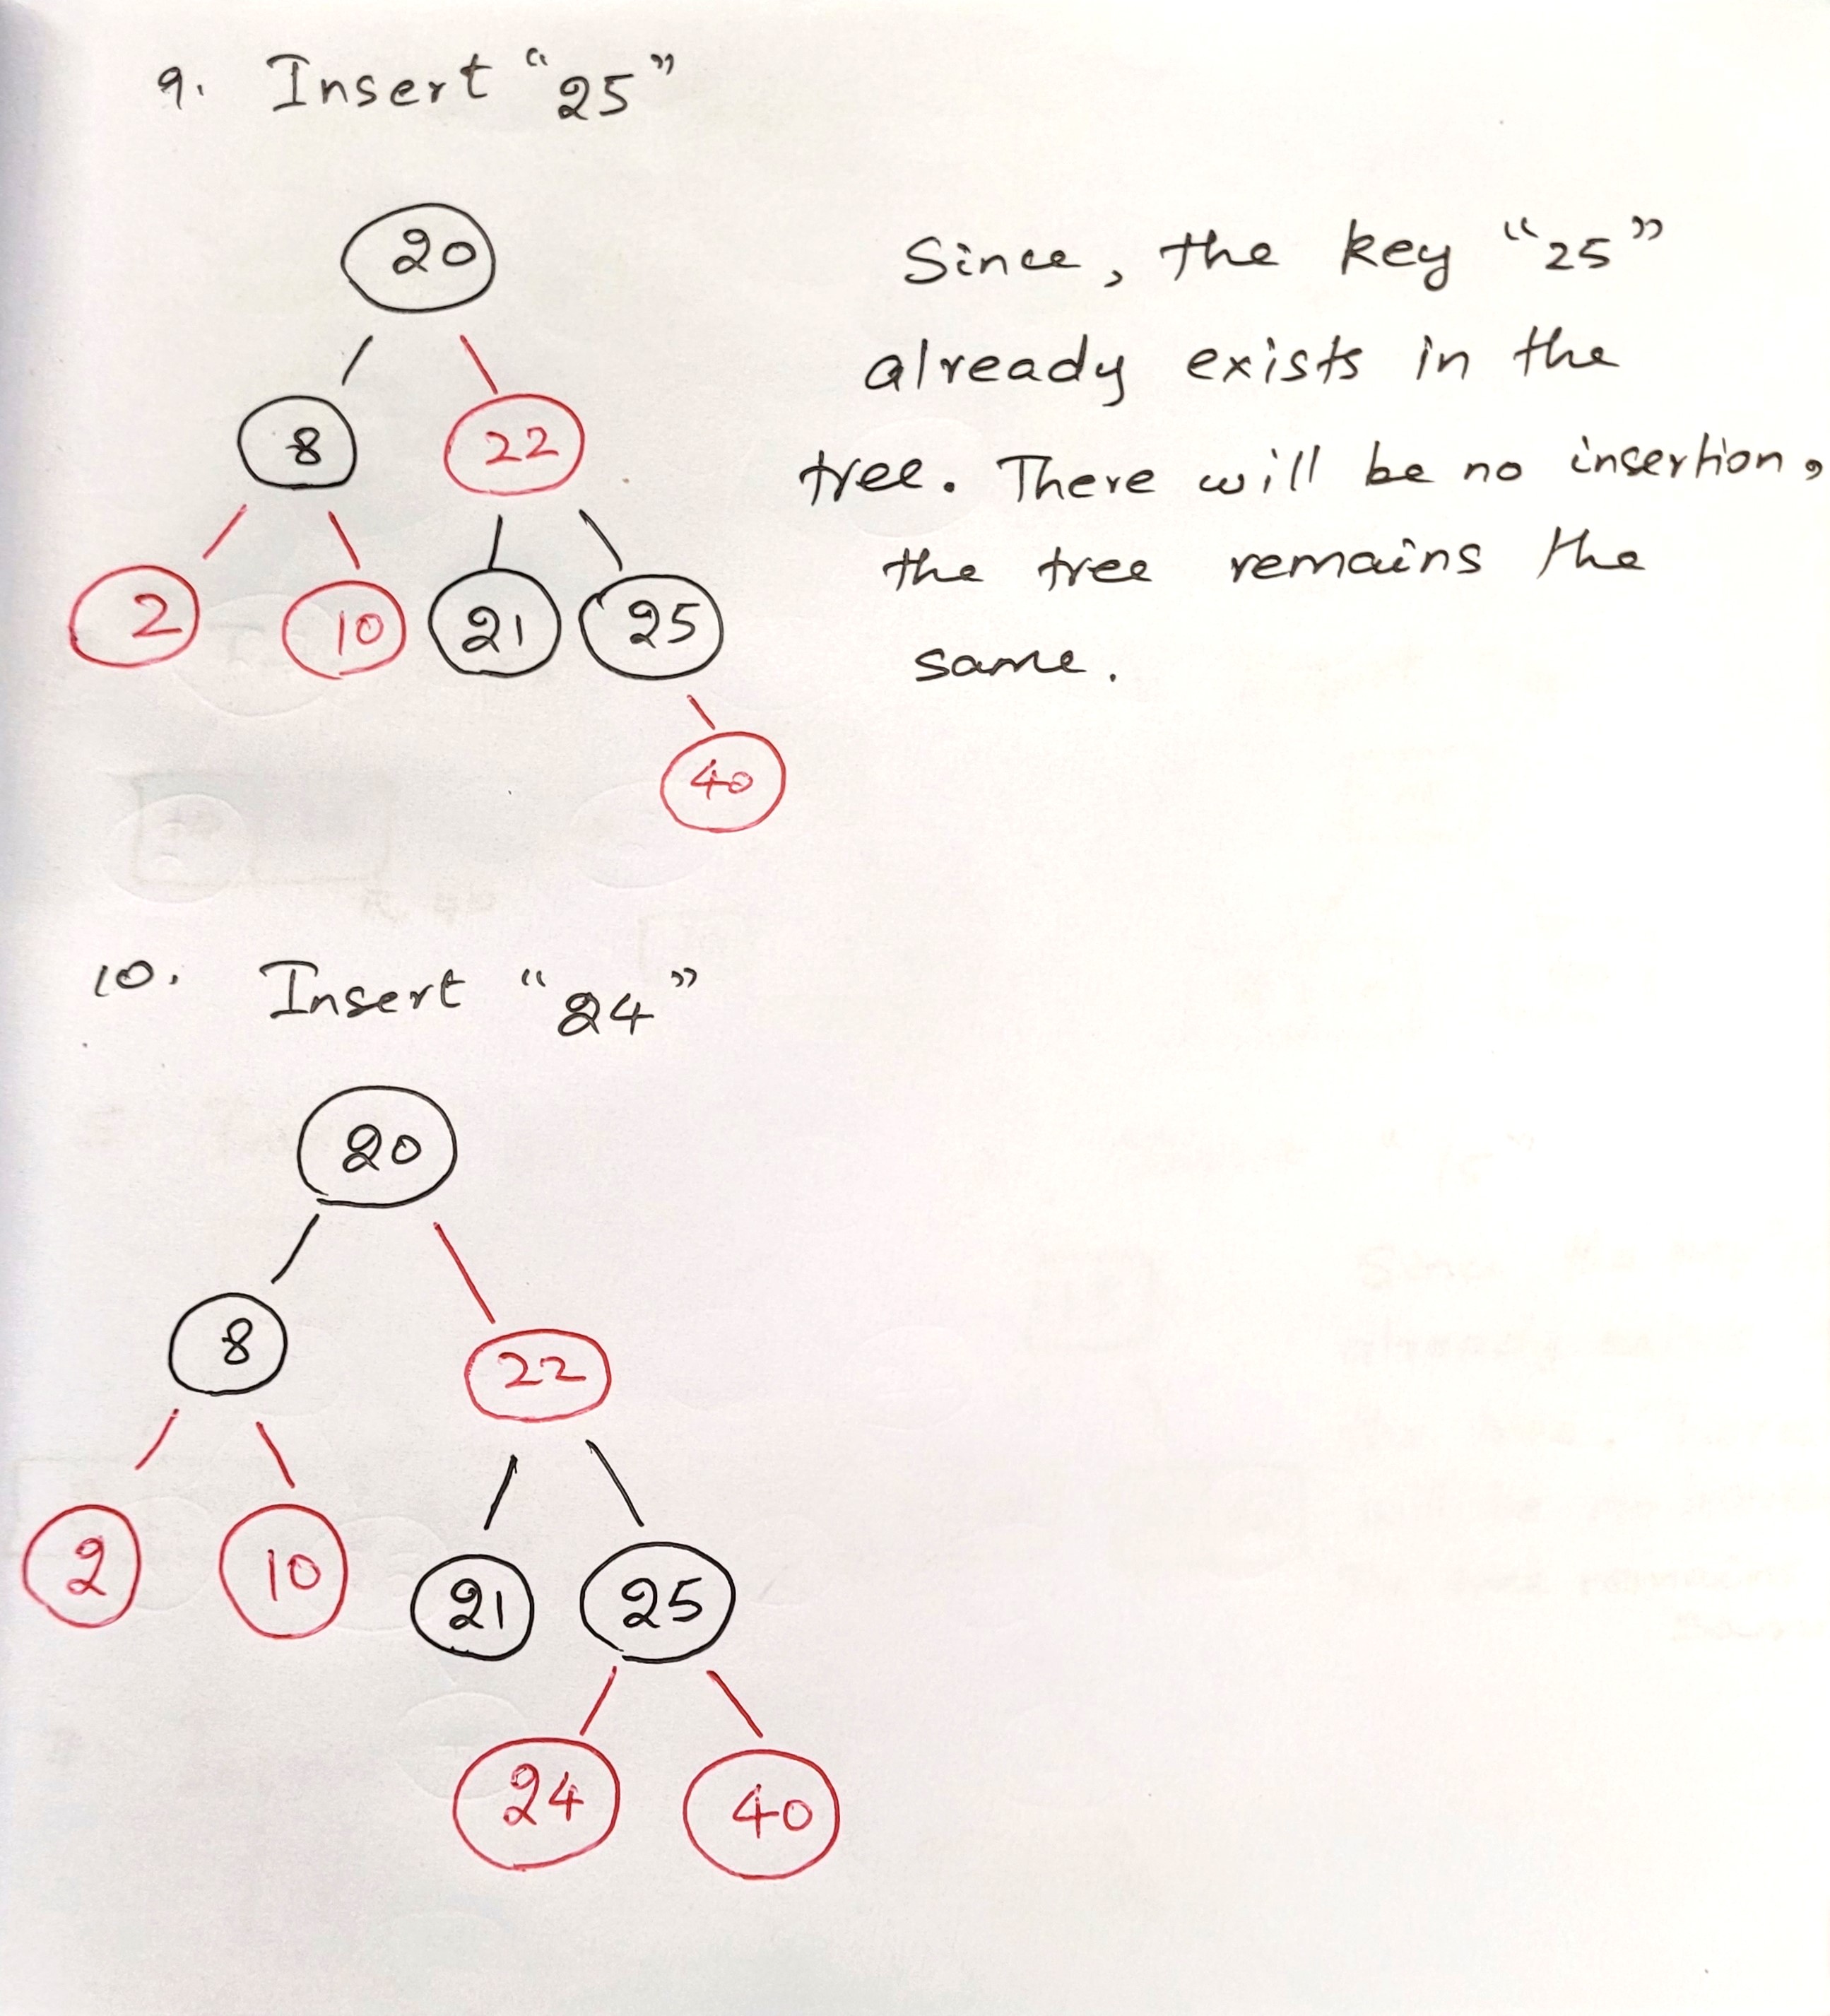 9. Insert "25"
20
8 22
2 10 21 25
40
Since, the key "25"
already exists in the
tree. There will be no insertion,
the tree remains the
same.
10. Insert "24"
20
8 22
2 10 21 25
24 40